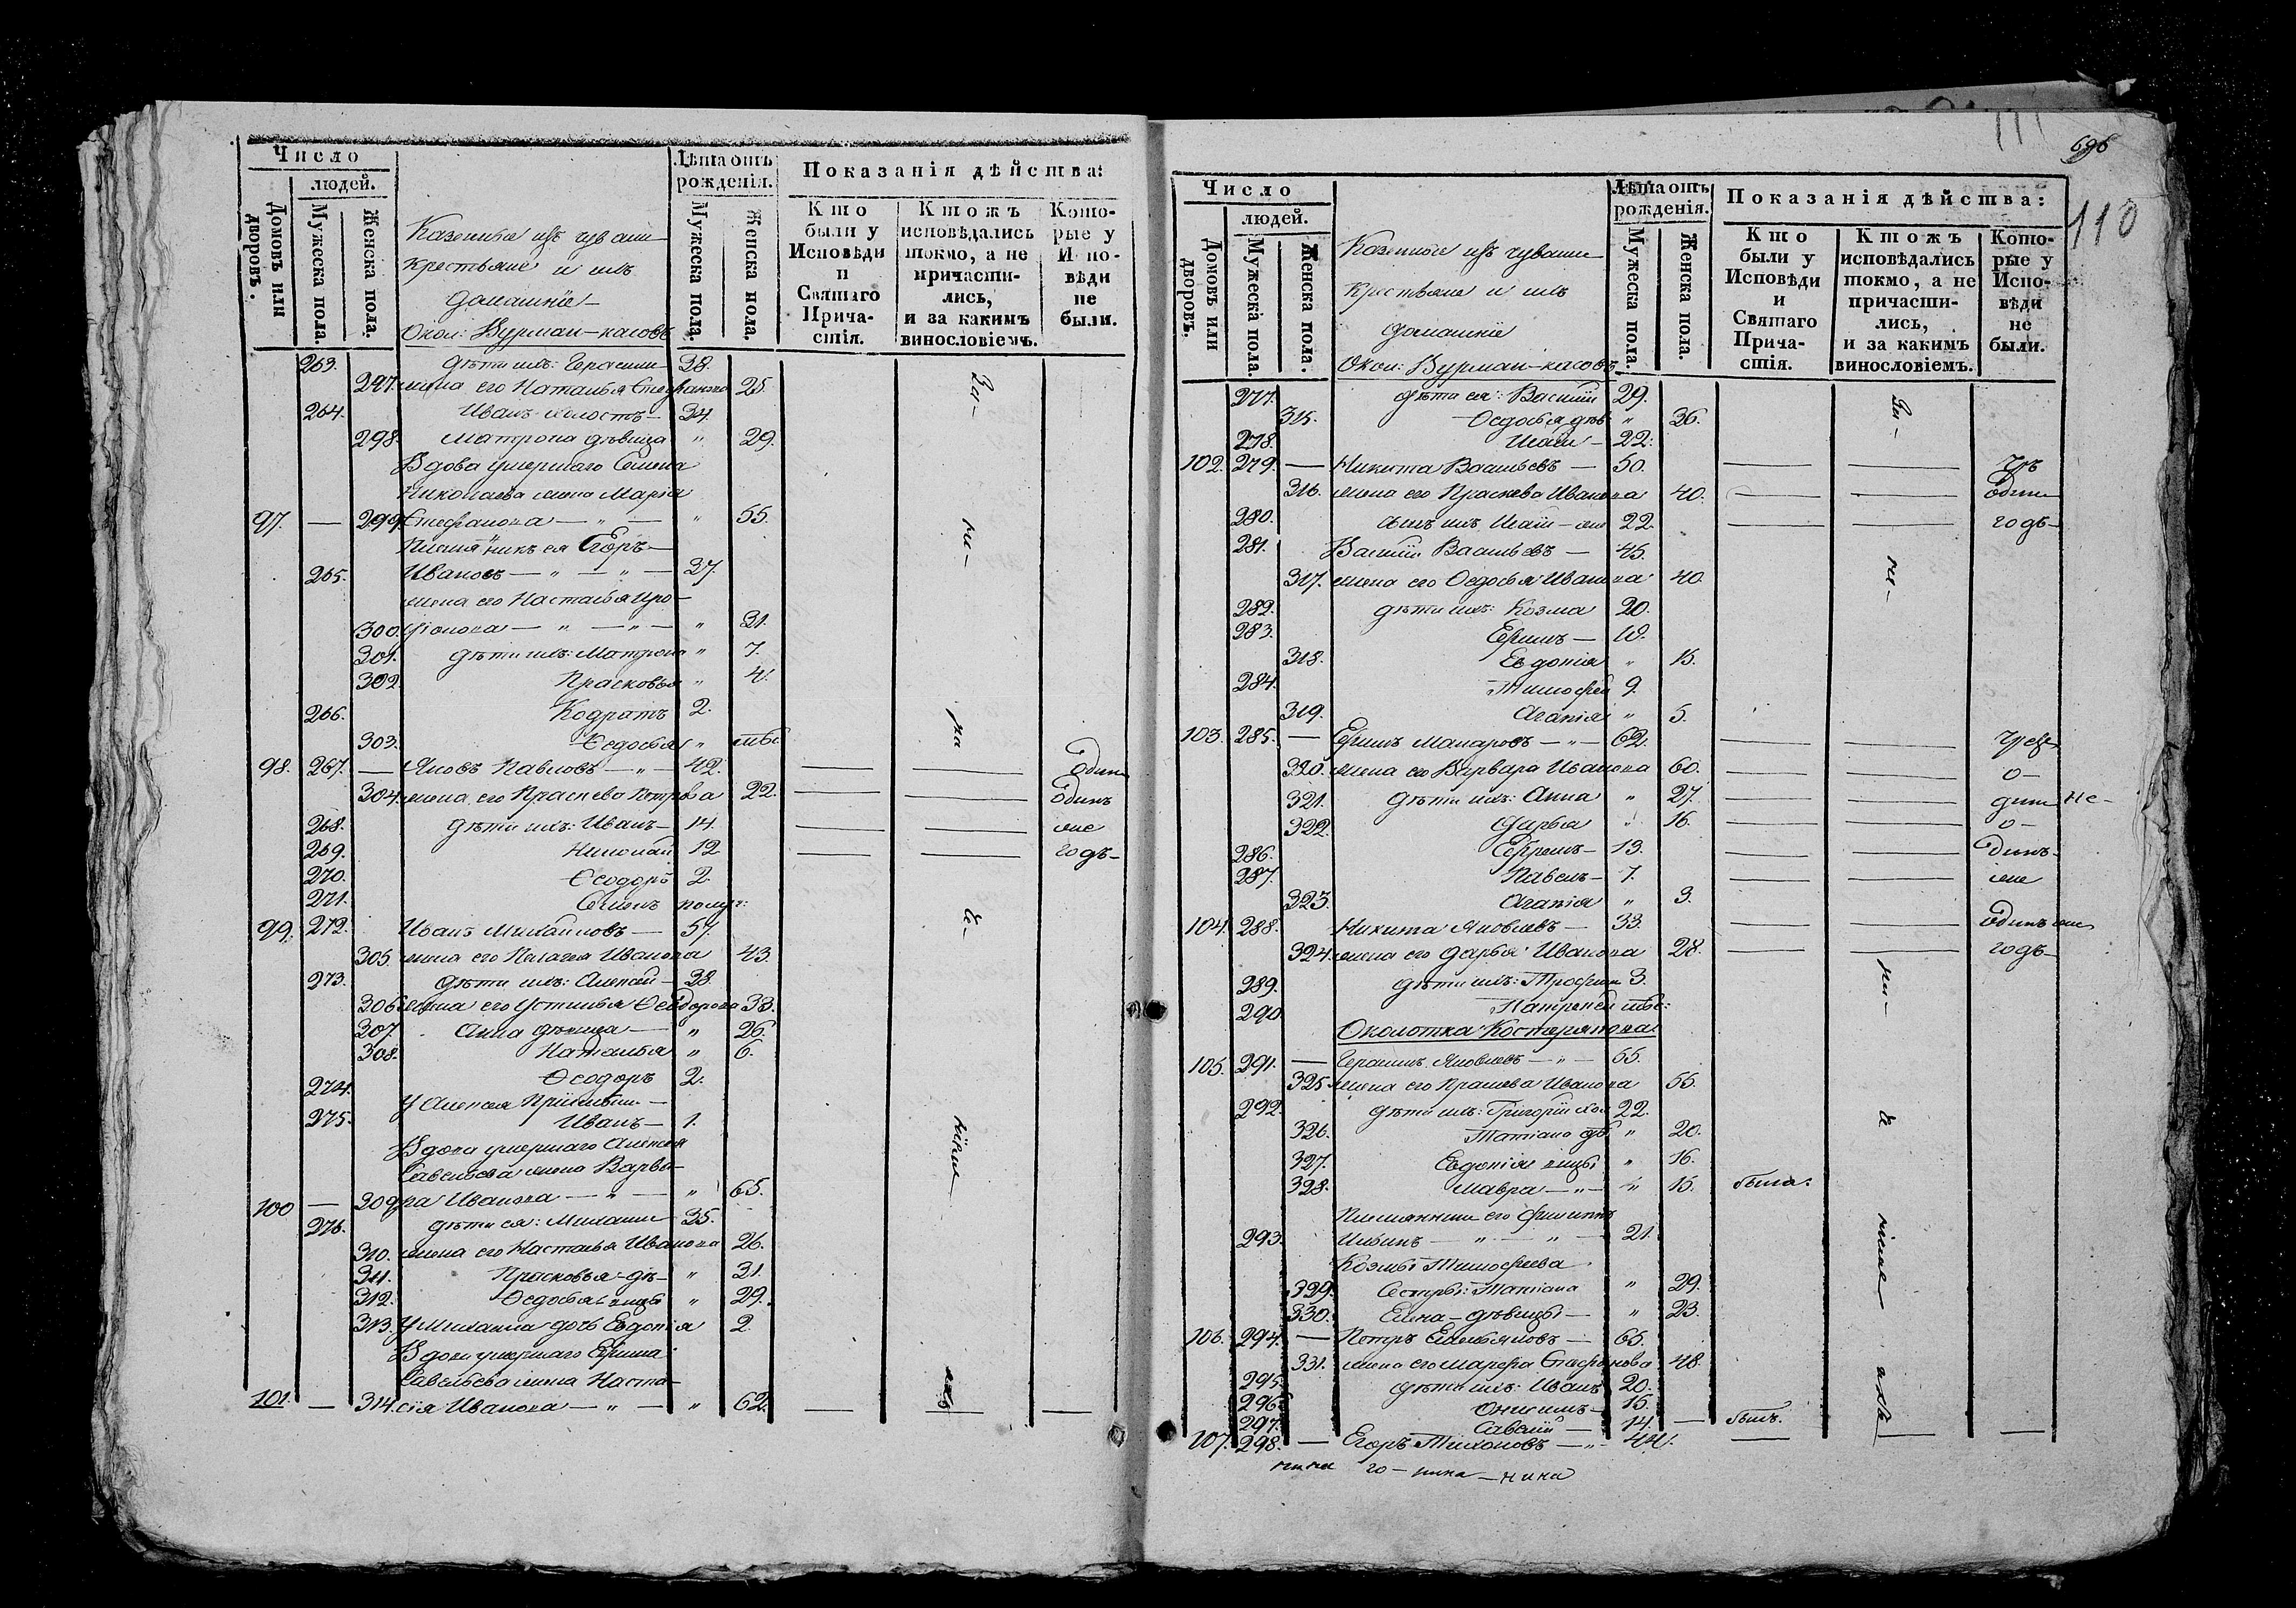 Число
людей.
Домовъ или дворовъ.
Мужеска пола.
Женска пола.
Казенные изъ чуваш
крестьяне и ихъ
домашніе
Окол: Вурман-касовъ
Лѣта отъ рожденія.
Мужеска пола.
Женска пола.
Показанія дѣйства:
Кто были у Исповѣди и Святаго Прича- стія.
Ктожъ исповѣдались токмо, а не причасти- лись, и за какимъ винословіемъ.
Кото- рые у Испо- вѣди не были.
263. дѣти ихъ: Герасим 28.
297. жена его Наталья Стефанова 25.
264. Иванъ холостъ 24.
298. Матрона дѣвица " 29.
Вдова умершаго Семена
Николаева жена Марія
97. — 299. Стефанова — " — " 55.
Племянникъ ея Егоръ
265. Ивановъ — " — " — 27.
жена его Настасья Иро-
300. діонова — " — " — " 31.
301. дѣти ихъ: Матрона " 7.
302. Прасковья " 4.
266. Кодратъ 2.
303. Ѳедосья "
98. 267. — Яковъ Павловъ — " — 42. — — Одинъ
304. жена его Праскева Петрова 22. — — Одинъ
268. дѣти ихъ: Иванъ 14. — — же
269. Николай 12 — — годъ
270. Ѳеодоръ 2.
271. Семенъ полуг:
99. 272. Иванъ Михайловъ — 57.
305. жена его Пелагея Иванова 43.
273. дѣти ихъ: Алексей 23.
306. жена его Устинья Ѳеодорова 33.
307. Анна дѣвица — " 26.
308. Наталья " 6.
274. Ѳеодоръ 2.
У Алексея
275. Иванъ — 1.
Вдова умершаго Алексея
Савельева жена Варва-
100 — 309. ра Иванова — " — " 65.
276. дѣти ея: Михаилъ 35.
310. жена его Настасья Иванова 26.
311. Прасковья дѣ- " 31.
312. Ѳедосья вицы " 29.
313. У Михаила дочь Евдокія 2.
Вдова умершаго Ефима
Савельева жена Наста-
101. — 314. сія Иванова — " — " 62. — — —
696
110
Число
людей.
Домовъ или дворовъ.
Мужеска пола.
Женска пола.
Казенные изъ чуваш
крестьяне и ихъ
домашніе
Окол: Вурман-касовъ
Лѣта отъ рожденія.
Мужеска пола.
Женска пола.
Показанія дѣйства:
Кто были у Исповѣди и Святаго Прича- стія.
Ктожъ исповѣдались токмо, а не причасти- лись, и за какимъ винословіемъ.
Кото- рые у Испо- вѣди не были.
277. дѣти ея: Василій 29.
315. Ѳедосья дѣв " 26.
278. 22.
102. 279. — Никита Васильевъ — 50. — —
316. жена его Праскева Иванова 40. — — Одинъ
280. сынъ ихъ 22. — — годъ
281. Василій Васильевъ — 45.
317. жена его Ѳедосья Иванова 40.
282. дѣти ихъ: Козма 20.
283. Ефимъ — 18.
318. Евдокія " 15.
284. Тимофей 9.
319. Агапія " 5.
103. 285. — Ефимъ Макаровъ — " — 62. — —
320. жена его Варвара Иванова 60. — — о-
321. дѣти ихъ: Анна " 27. — — Не-
322. Дарья " 16. — — о-
286. Ефремъ — 13. — — динъ
287. Павелъ — 7. — — же
323. Агапія " 3.
104. 288. Никита Яковлевъ — 33. — — Одинъ же
324. жена его Дарья Иванова 28. — — годъ
289. дѣти ихъ: Трофимъ 3.
290.
Околотка Костерякова.
105. 291. — Герасимъ Яковлевъ — " — 55.
325. жена его Праскева Иванова 55.
292. дѣти ихъ: Григорій хол 22.
326. Татіана дѣ " 20.
327. Евдокія вицы " 16.
328. Мавра — " — " 15. была.
Племянникъ его Филиппъ
293. Ильинъ — " — " — 21.
Козмы Тимофеева
329. Сестры: Татіана " 29.
330. Елена дѣвицы — " 23.
106. 294. — Петръ Емельяновъ — 65.
331. жена его Марфа Стефанова 48.
295. дѣти ихъ: Иванъ 20.
296. Онисимъ 15.
297. Савелій — 14. — былъ.
107. 298. — Егоръ Тихоновъ — " — 44. — — —